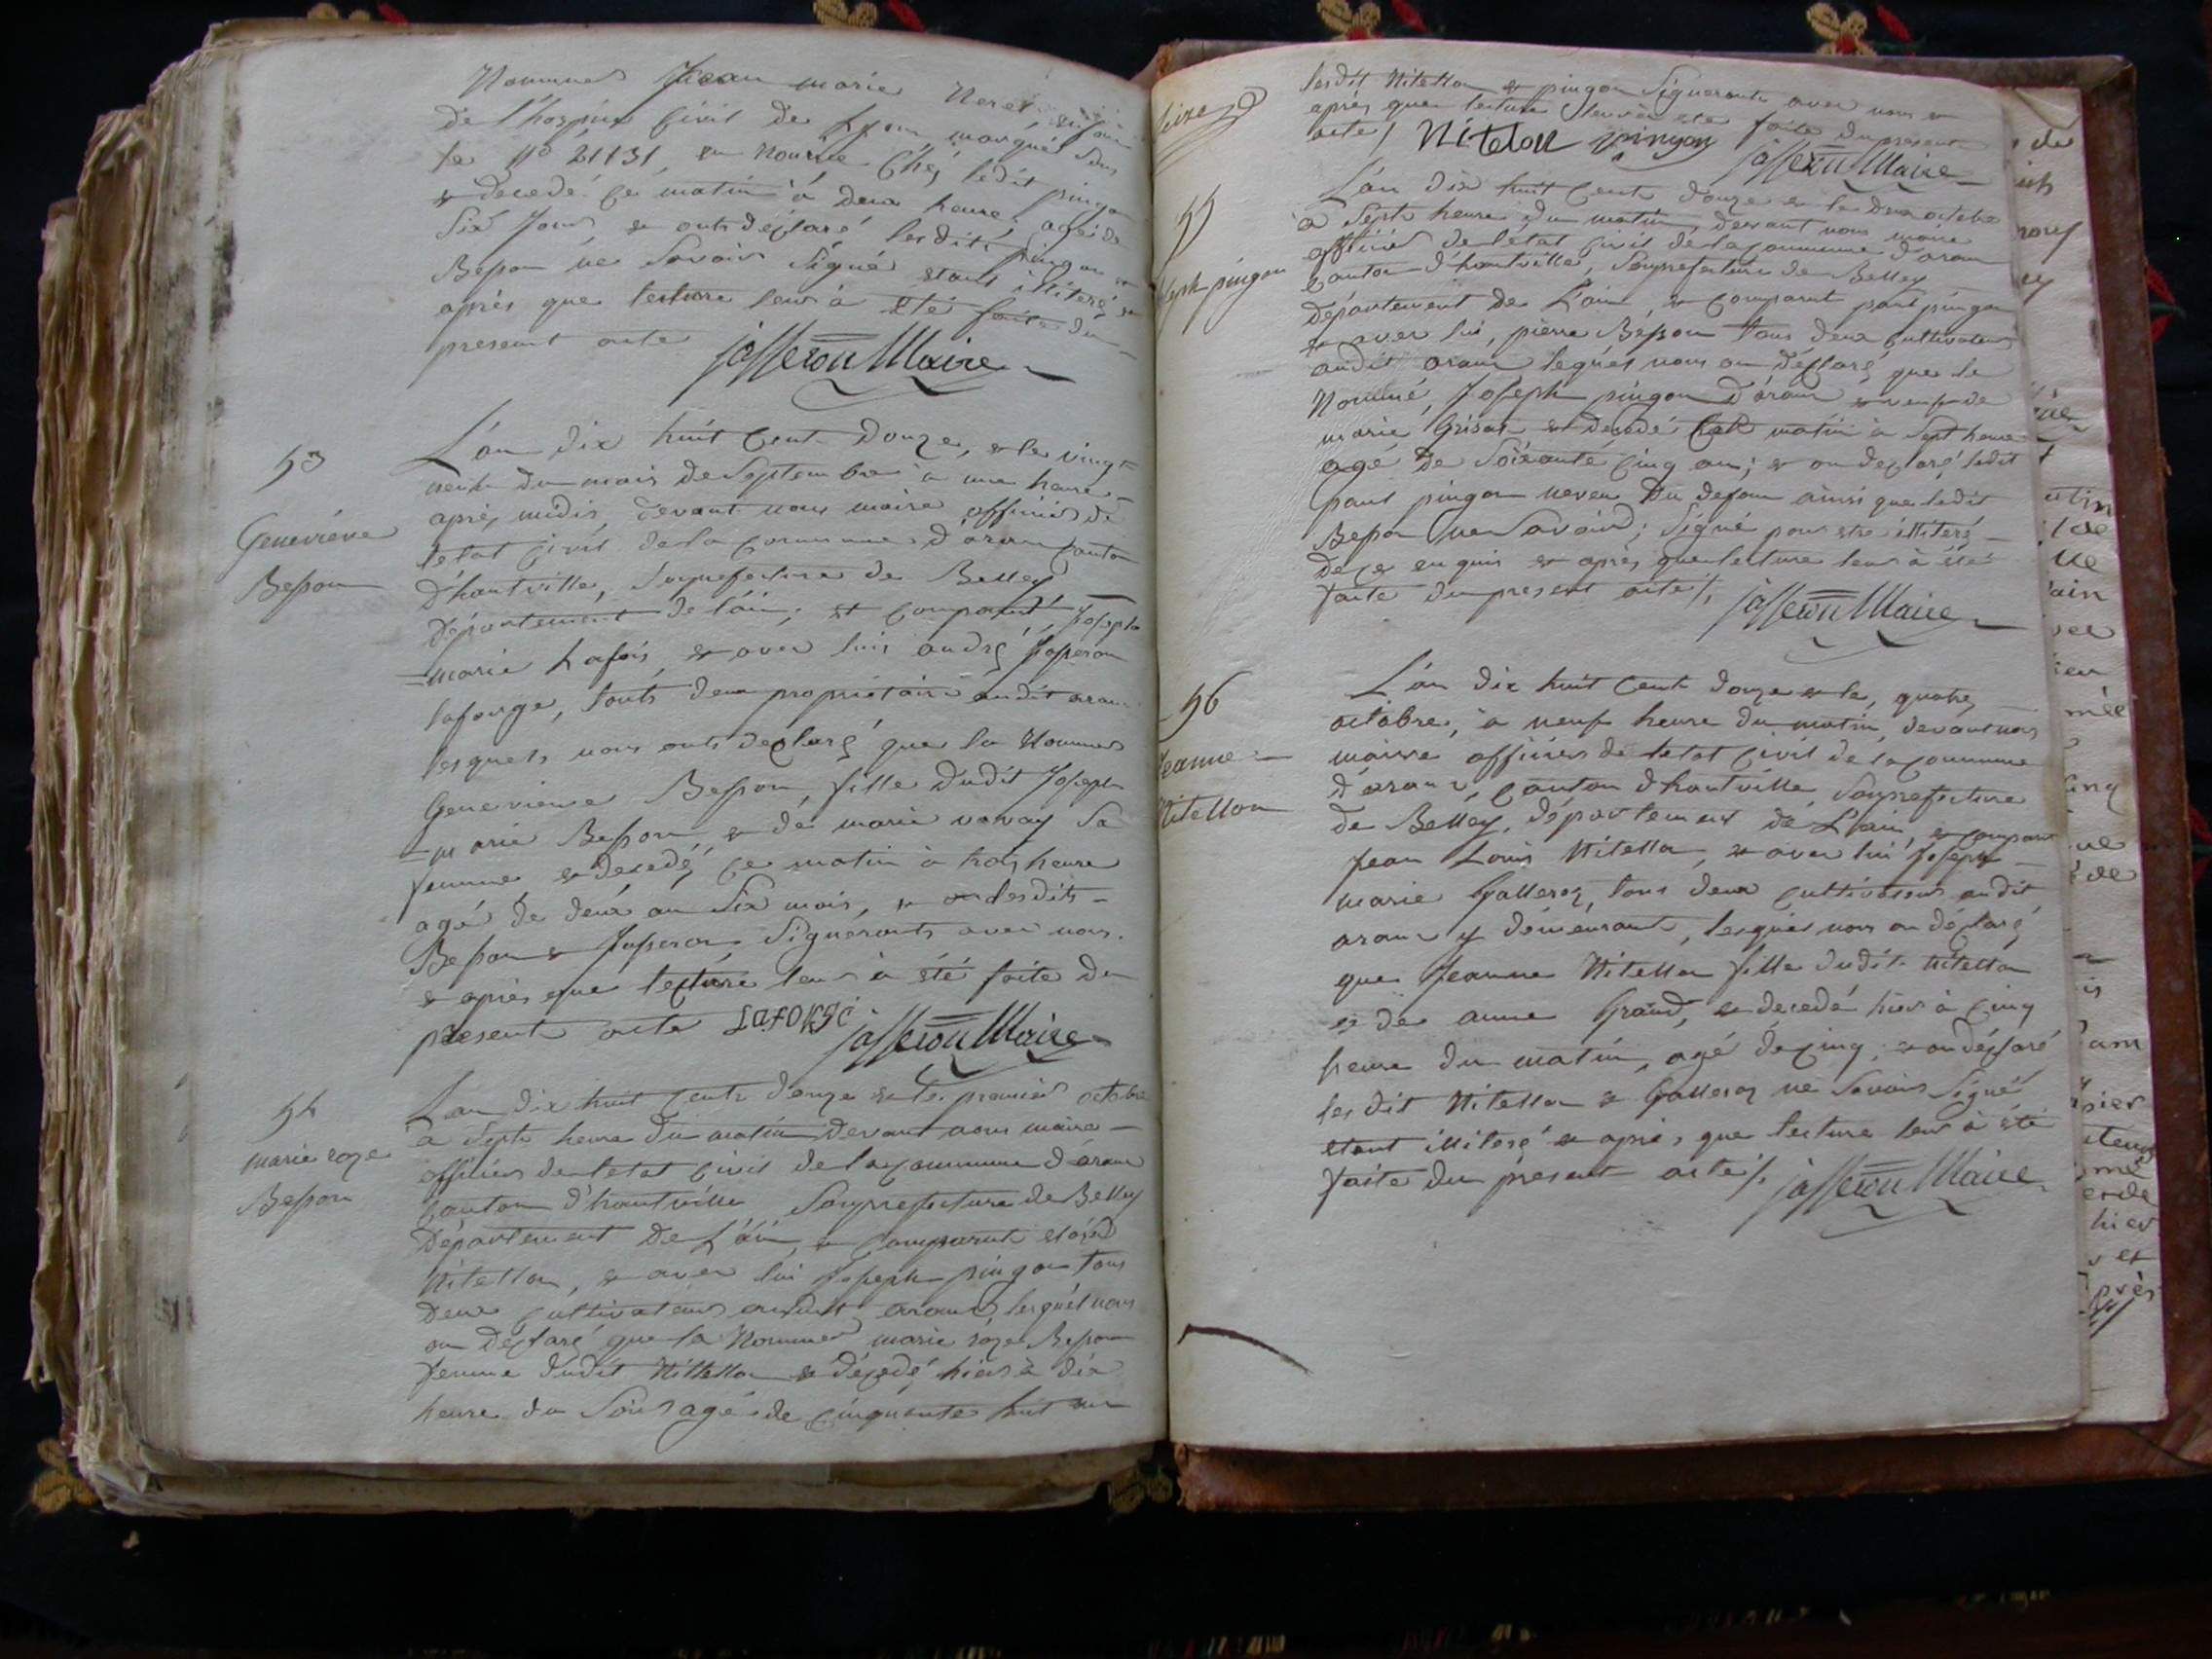 Nommé Jean marie
de l'hospice Civil de Lyon marqué sous
le No 21131, en nourrice Chéz ledit pingon
& decedé ce matin à deux heure, agé de
Six Jour, & onts déclaré lesdits pingon &
Besson ne Savoir Signé etant illiteré &
après que lecture leur à eté faite du
present acte josseron Maire
53
Genevieve
Besson
L'an dix huit Cent Douze, & le vingt
neuf du mois de Septembre à une heure
après midis, devant nous maire officier de
l'etat Civil de la Commune d'aran canton
D'hautville, Sousprefecture de Belley
département de l'ain, est comparut, Joseph
marie & avec luis andré Josseron
laforge, touts deux propriétaire audit aran
lesquels nous onts déclaré que la Nommé
Genevieve Besson, fille dudit Joseph
marie Besson, & de marie Sa
femme & decedé, ce matin à trois heure
agé de deux an Six mois, & lesdits
Besson & Josseron Signeronts avec nous
& après que lecture leur à été faite du
present acte LaFORGE josseron Maire
54
marie roze
Besson
L'an dix huit Cents douze & le premier octobre
à Septs heure du matin devant nous maire
officier de l'etat Civil de la Commune d'aran
Canton d'hautville Sousprefecture de Belley
Département De L'ain, & Comparut
Nitellon, & avec lui Joseph pingon tous
Deux Cultivateurs audit aran, lesquél nous
on déclaré que la Nommé marie roze Besson
femme dudit Nitellon & décedé hier à dix
heure du Soir agé de Cinquante huit an
lesdit Nitellon & pingon Signeronts avec nous &
après que lecture leur à eté faite du present
acte / Nitelon pingon
josseron Maire
55
Joseph pingon
L'an dix huit Cents douze & le deux octobre
à Septs heure du matin, devant nous maire
officier de l'état Civil de la Commune d'aran
Canton d'hautville, Sousprefecture de Belley
département de L'ain, & Comparut paul pingon
& avec lui, pierre Besson tous deux Cultivateurs
audit aran lequél nous on déclaré que le
Nommé, Joseph pingon d'aran & veuf de
marie & decedé matin à Sept heure
agé de Soixante Cinq an; & on declaré ledit
paul pingon neveu Du defun ainsi que ledit
Besson ne Savoir; Signé pour etre illiteré
de ce enquis & après que lecture leur à été
faite du present acte /. josseron Maire
56
Jeanne
Nitellon
L'an dix huit Cent douze & le, quatre
octobre, à neuf heure du matin, devant nous
maire officier de l'etat Civil de la Commune
d'aran, Canton d'hautville Sousprefecture
de Belley, département de L'ain, & comparut
Jean Louis Nitellon, & avec lui Joseph
marie Galleroz, tous deux Cultivateurs audit
aran y demeurant, lesquél nous on déclaré
que Jeanne Nitellon fille dudit Nitellon
& de anne Grand, & decedé hier à Cinq
heure du matin, agé de cinq; & on déclaré
les dit Nitellon & Galleroz ne Savoir Signé
etant illiteré & après que lecture leur à été
faite du present acte /. josseron Maire